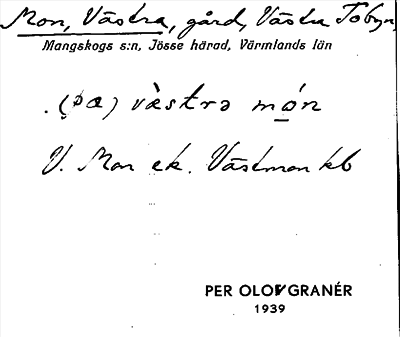 Mon, Västra, gård, Västra Tobyn,
Mangskogs s:n, Jösse härad, Värmlands län
. (pæ) vàstrə mo̱n
V. Mon ek. Västmon kb
PER OLOV GRANÉR
1939